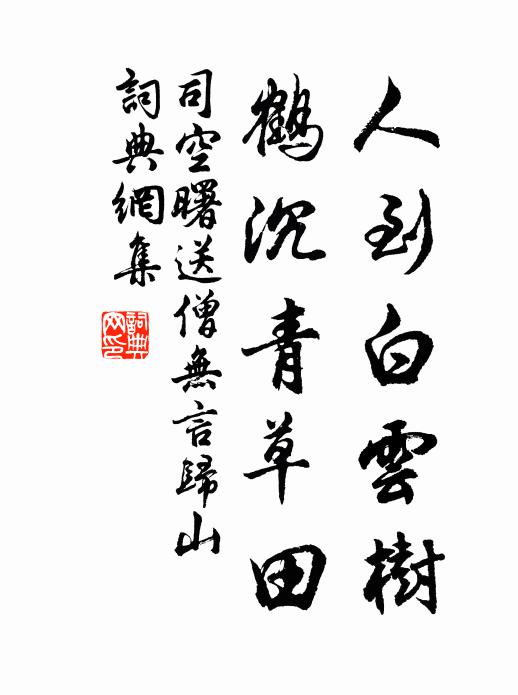 人到白雲樹
鶴沉青草田
司空曙送僧無言歸山
詞典網集
詞典網印